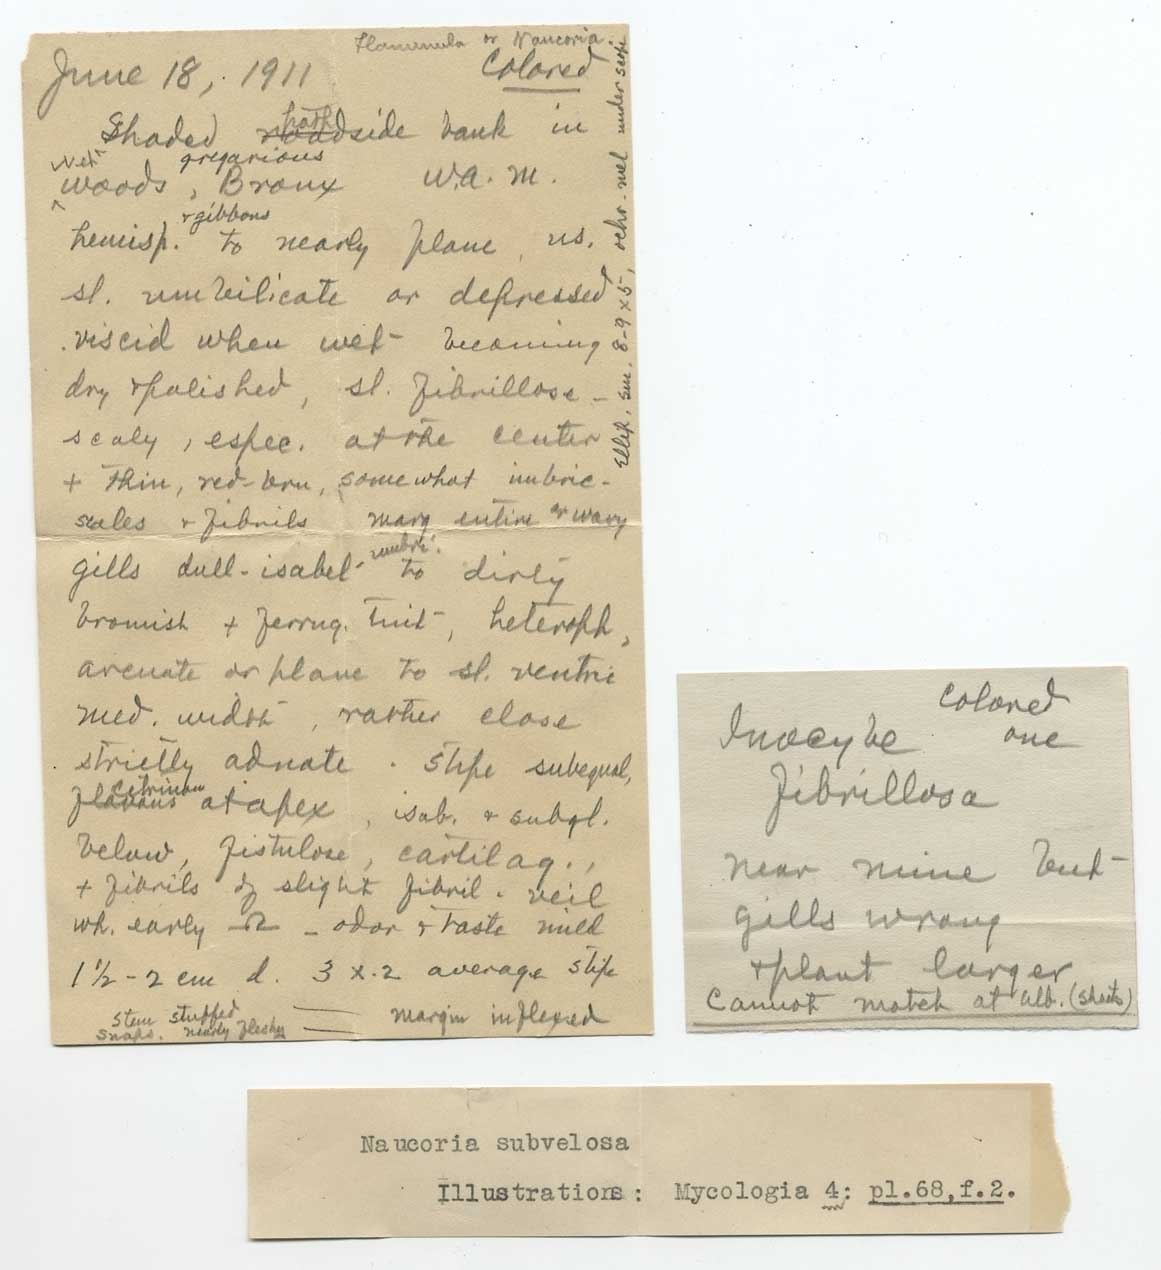 Flammula or Naucoria.
June 18, 1911
Colored
Shaded roadside bank in
path
wet
gregarious
woods, Bronx W.A.M.
& gibbous
hemisp. to nearly plane, us.
sl. umbilicate or depressed
viscid when wet becoming
dry & polished, sl. fibrillose-
scaly, espec. at the center
+ thin, red-brn, somewhat imbric-
scales & fibrils marg entire or wavy
gills dull-isabel to dirty
umbri.
brownish + ferrug. tint, heteroph,
arcuate or plane to sl. ventric
med. width, rather close
strictly adnate. Stipe subequal,
citrinus
flavous at apex, isab. & subgl.
below, fistulose, cartilag.,
+ fibrils of slight fibril. veil
wh. early - odor & taste mild
1½-2 cm d. 3 x .2 average stipe
stem stuffed
snaps. nearly fleshy
margin inflexed
Ellip, sm. 8-9 x 5, ochr-mel under scope
Colored
Inocybe one
fibrillosa
near mine but
gills wrong
& plant larger
Cannot match at alb. (sheets)
Naucoria subvelosa
Illustrations: Mycologia 4: pl.68,f.2.